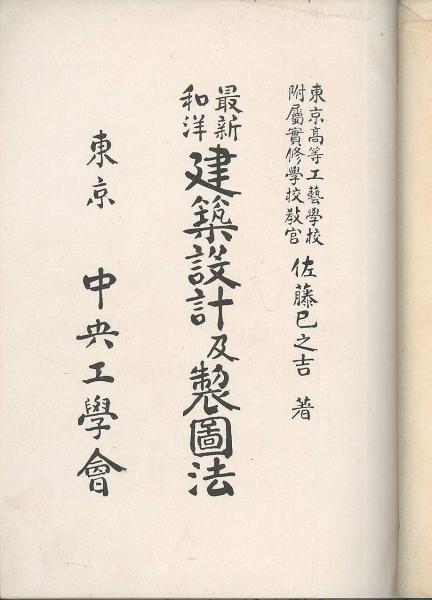 東京高等工藝學校
附屬實修學校教官
佐藤巳之吉 著
最新
和洋
建築設計及製圖法
東京 中央工學會